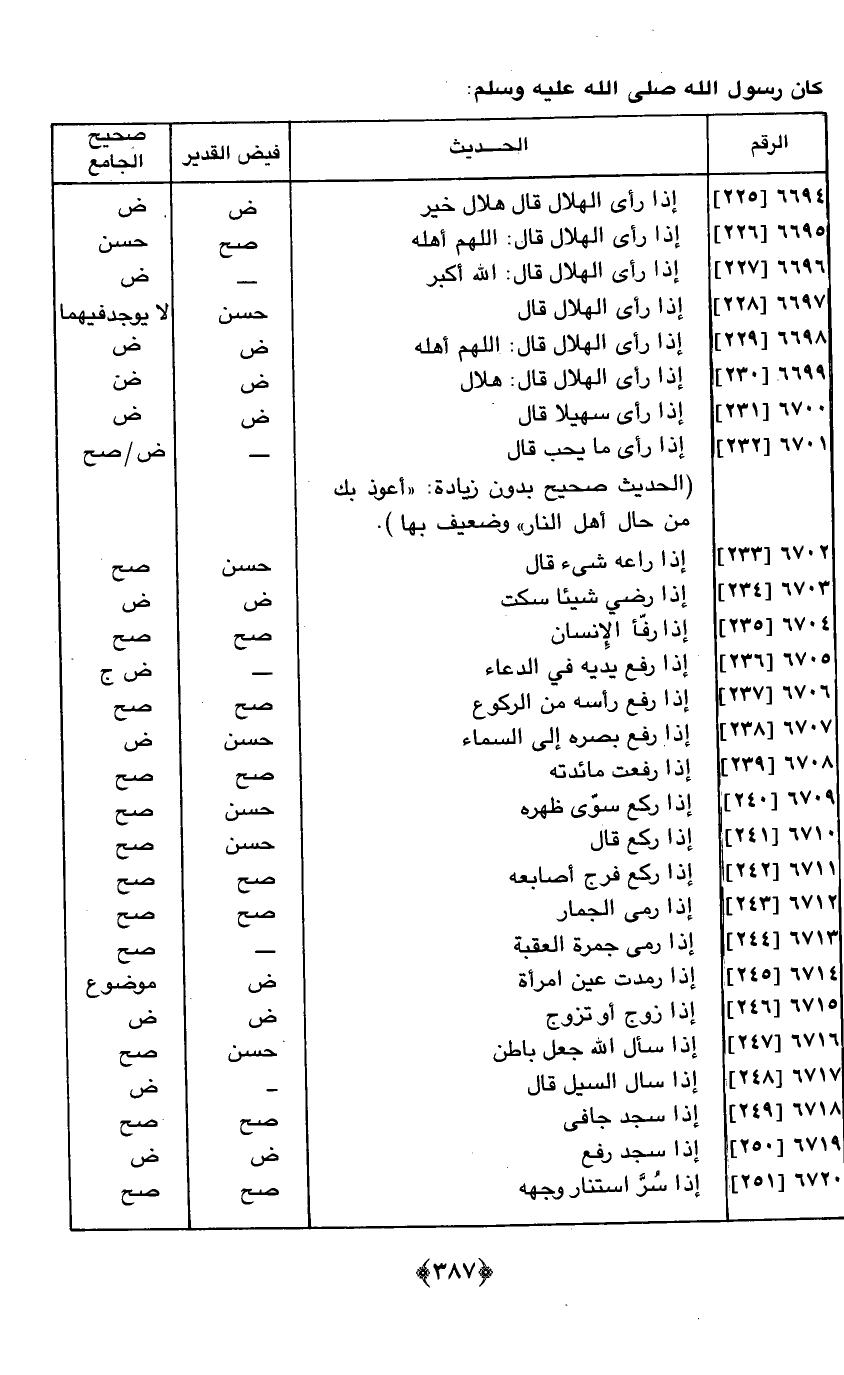 كان رسول الله صلى الله عليه وسلم:
الرقم الحـــديث فيض القدير صحيح الجامع
٦٦٩٤ [٢٢٥] إذا رأى الهلال قال هلال خير ض ض
٦٦٩٥ [٢٢٦] إذا رأى الهلال قال: اللهم أهله صح حسن
٦٦٩٦ [٢٢٧] إذا رأى الهلال قال: الله أكبر — ض
٦٦٩٧ [٢٢٨] إذا رأى الهلال قال حسن لا يوجد فيهما
٦٦٩٨ [٢٢٩] إذا رأى الهلال قال: اللهم أهله ض ض
٦٦٩٩ [٢٣٠] إذا رأى الهلال قال: هلال ض ض
٦٧٠٠ [٢٣١] إذا رأى سهيلا قال ض ض
٦٧٠١ [٢٣٢] إذا رأى ما يحب قال — ض/صح
(الحديث صحيح بدون زيادة: «أعوذ بك
من حال أهل النار» وضعيف بها).
٦٧٠٢ [٢٣٣] إذا راعه شىء قال حسن صح
٦٧٠٣ [٢٣٤] إذا رضي شيئا سكت ض ض
٦٧٠٤ [٢٣٥] إذا رفّأ الإنسان صح صح
٦٧٠٥ [٢٣٦] إذا رفع يديه في الدعاء — ض ج
٦٧٠٦ [٢٣٧] إذا رفع رأسه من الركوع صح صح
٦٧٠٧ [٢٣٨] إذا رفع بصره إلى السماء حسن ض
٦٧٠٨ [٢٣٩] إذا رفعت مائدته صح صح
٦٧٠٩ [٢٤٠] إذا ركع سوّى ظهره حسن صح
٦٧١٠ [٢٤١] إذا ركع قال حسن صح
٦٧١١ [٢٤٢] إذا ركع فرج أصابعه صح صح
٦٧١٢ [٢٤٣] إذا رمى الجمار صح صح
٦٧١٣ [٢٤٤] إذا رمى جمرة العقبة — صح
٦٧١٤ [٢٤٥] إذا رمدت عين امرأة ض موضوع
٦٧١٥ [٢٤٦] إذا زوج أو تزوج ض ض
٦٧١٦ [٢٤٧] إذا سأل الله جعل باطن حسن صح
٦٧١٧ [٢٤٨] إذا سال السيل قال – ض
٦٧١٨ [٢٤٩] إذا سجد جافى صح صح
٦٧١٩ [٢٥٠] إذا سجد رفع ض ض
٦٧٢٠ [٢٥١] إذا سُرَّ استنار وجهه صح صح
﴿٣٨٧﴾